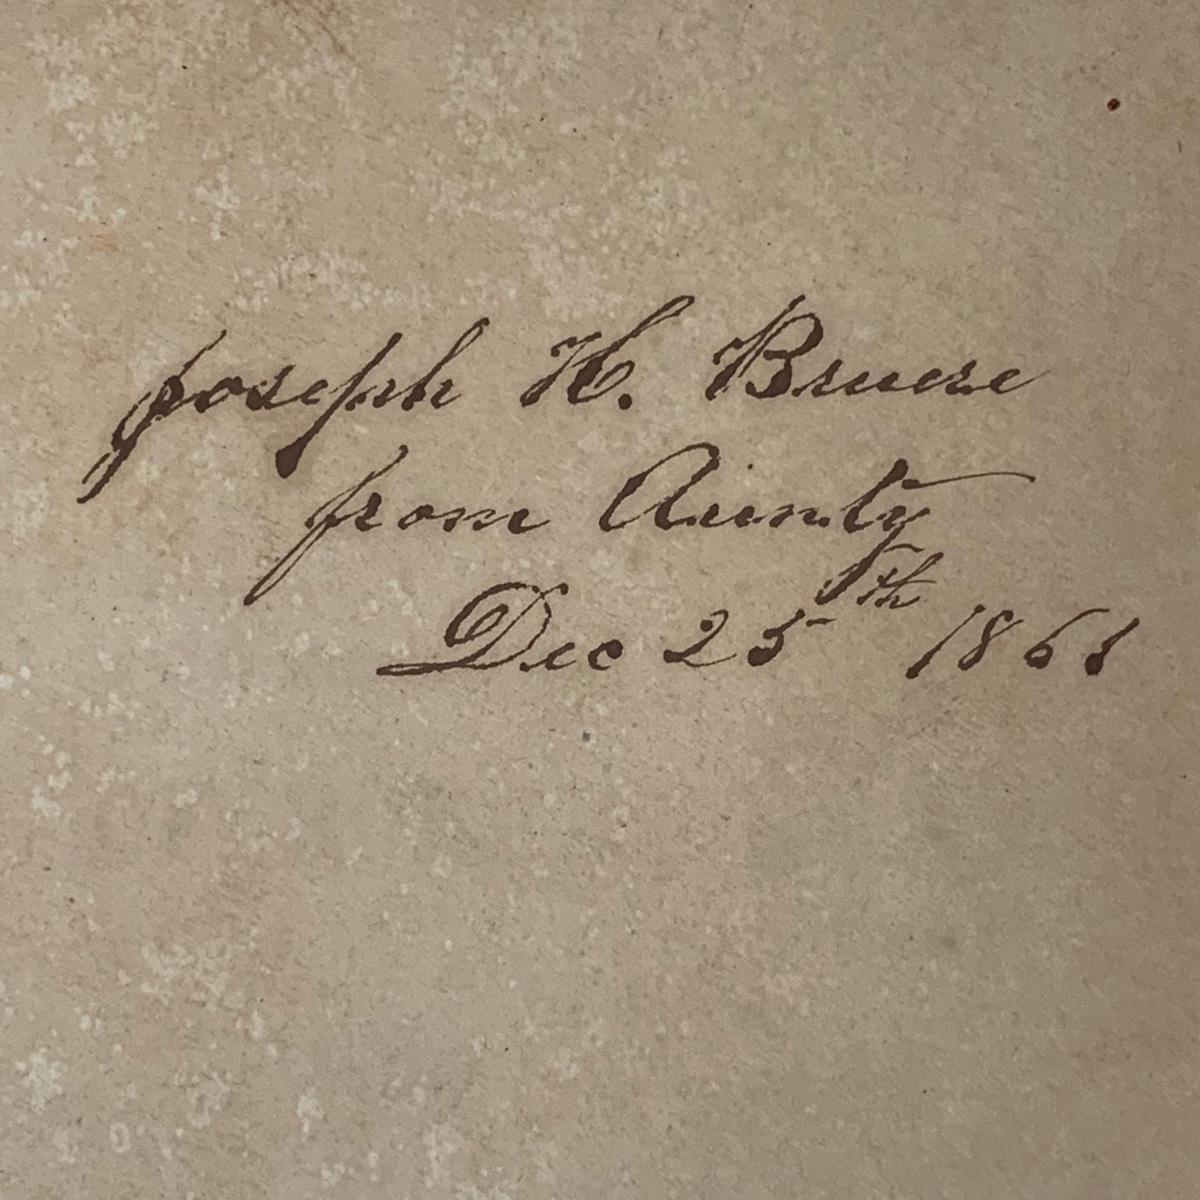 Joseph H. Bruere
from Aunty
Dec 25th 1861